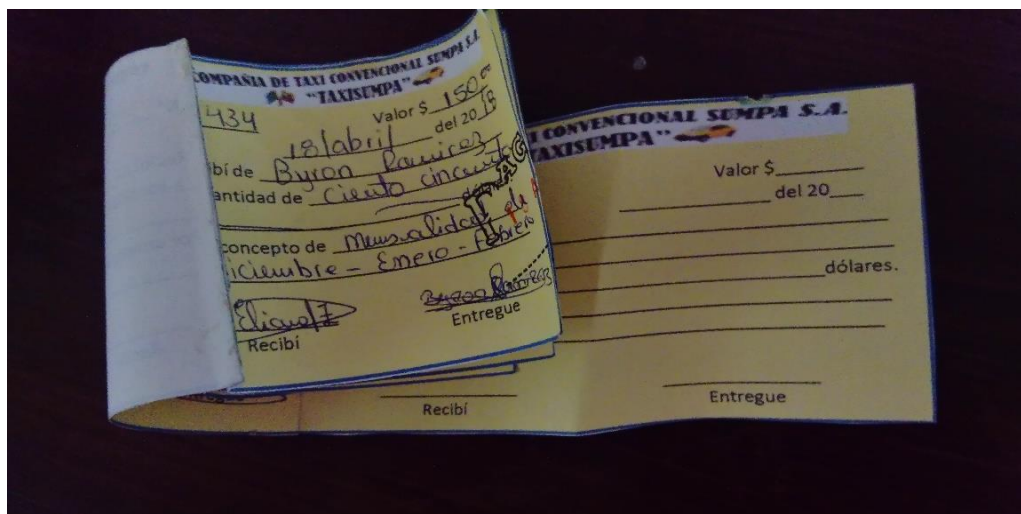 COMPAÑIA DE TAXI CONVENCIONAL SUMPA S.A.
"TAXISUMPA"
434 Valor $ 150,00
18/abril del 2018
bí de Byron Ramirez
antidad de Ciento cincuenta
concepto de Mensualidad de
iciembre - Enero - Febrero
Recibí Entregue
I CONVENCIONAL SUMPA S.A.
TAXISUMPA"
Valor $
del 20
dólares.
Recibí Entregue